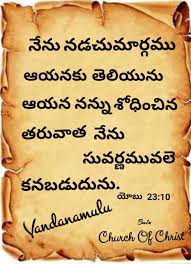 నేను నడచుమార్గము
ఆయనకు తెలియును
ఆయన నన్ను శోధించిన
తరువాత నేను
సువర్ణమువలె
కనబడుదును.
యోబు 23:10
Vandanamulu
Bala
Church Of Christ